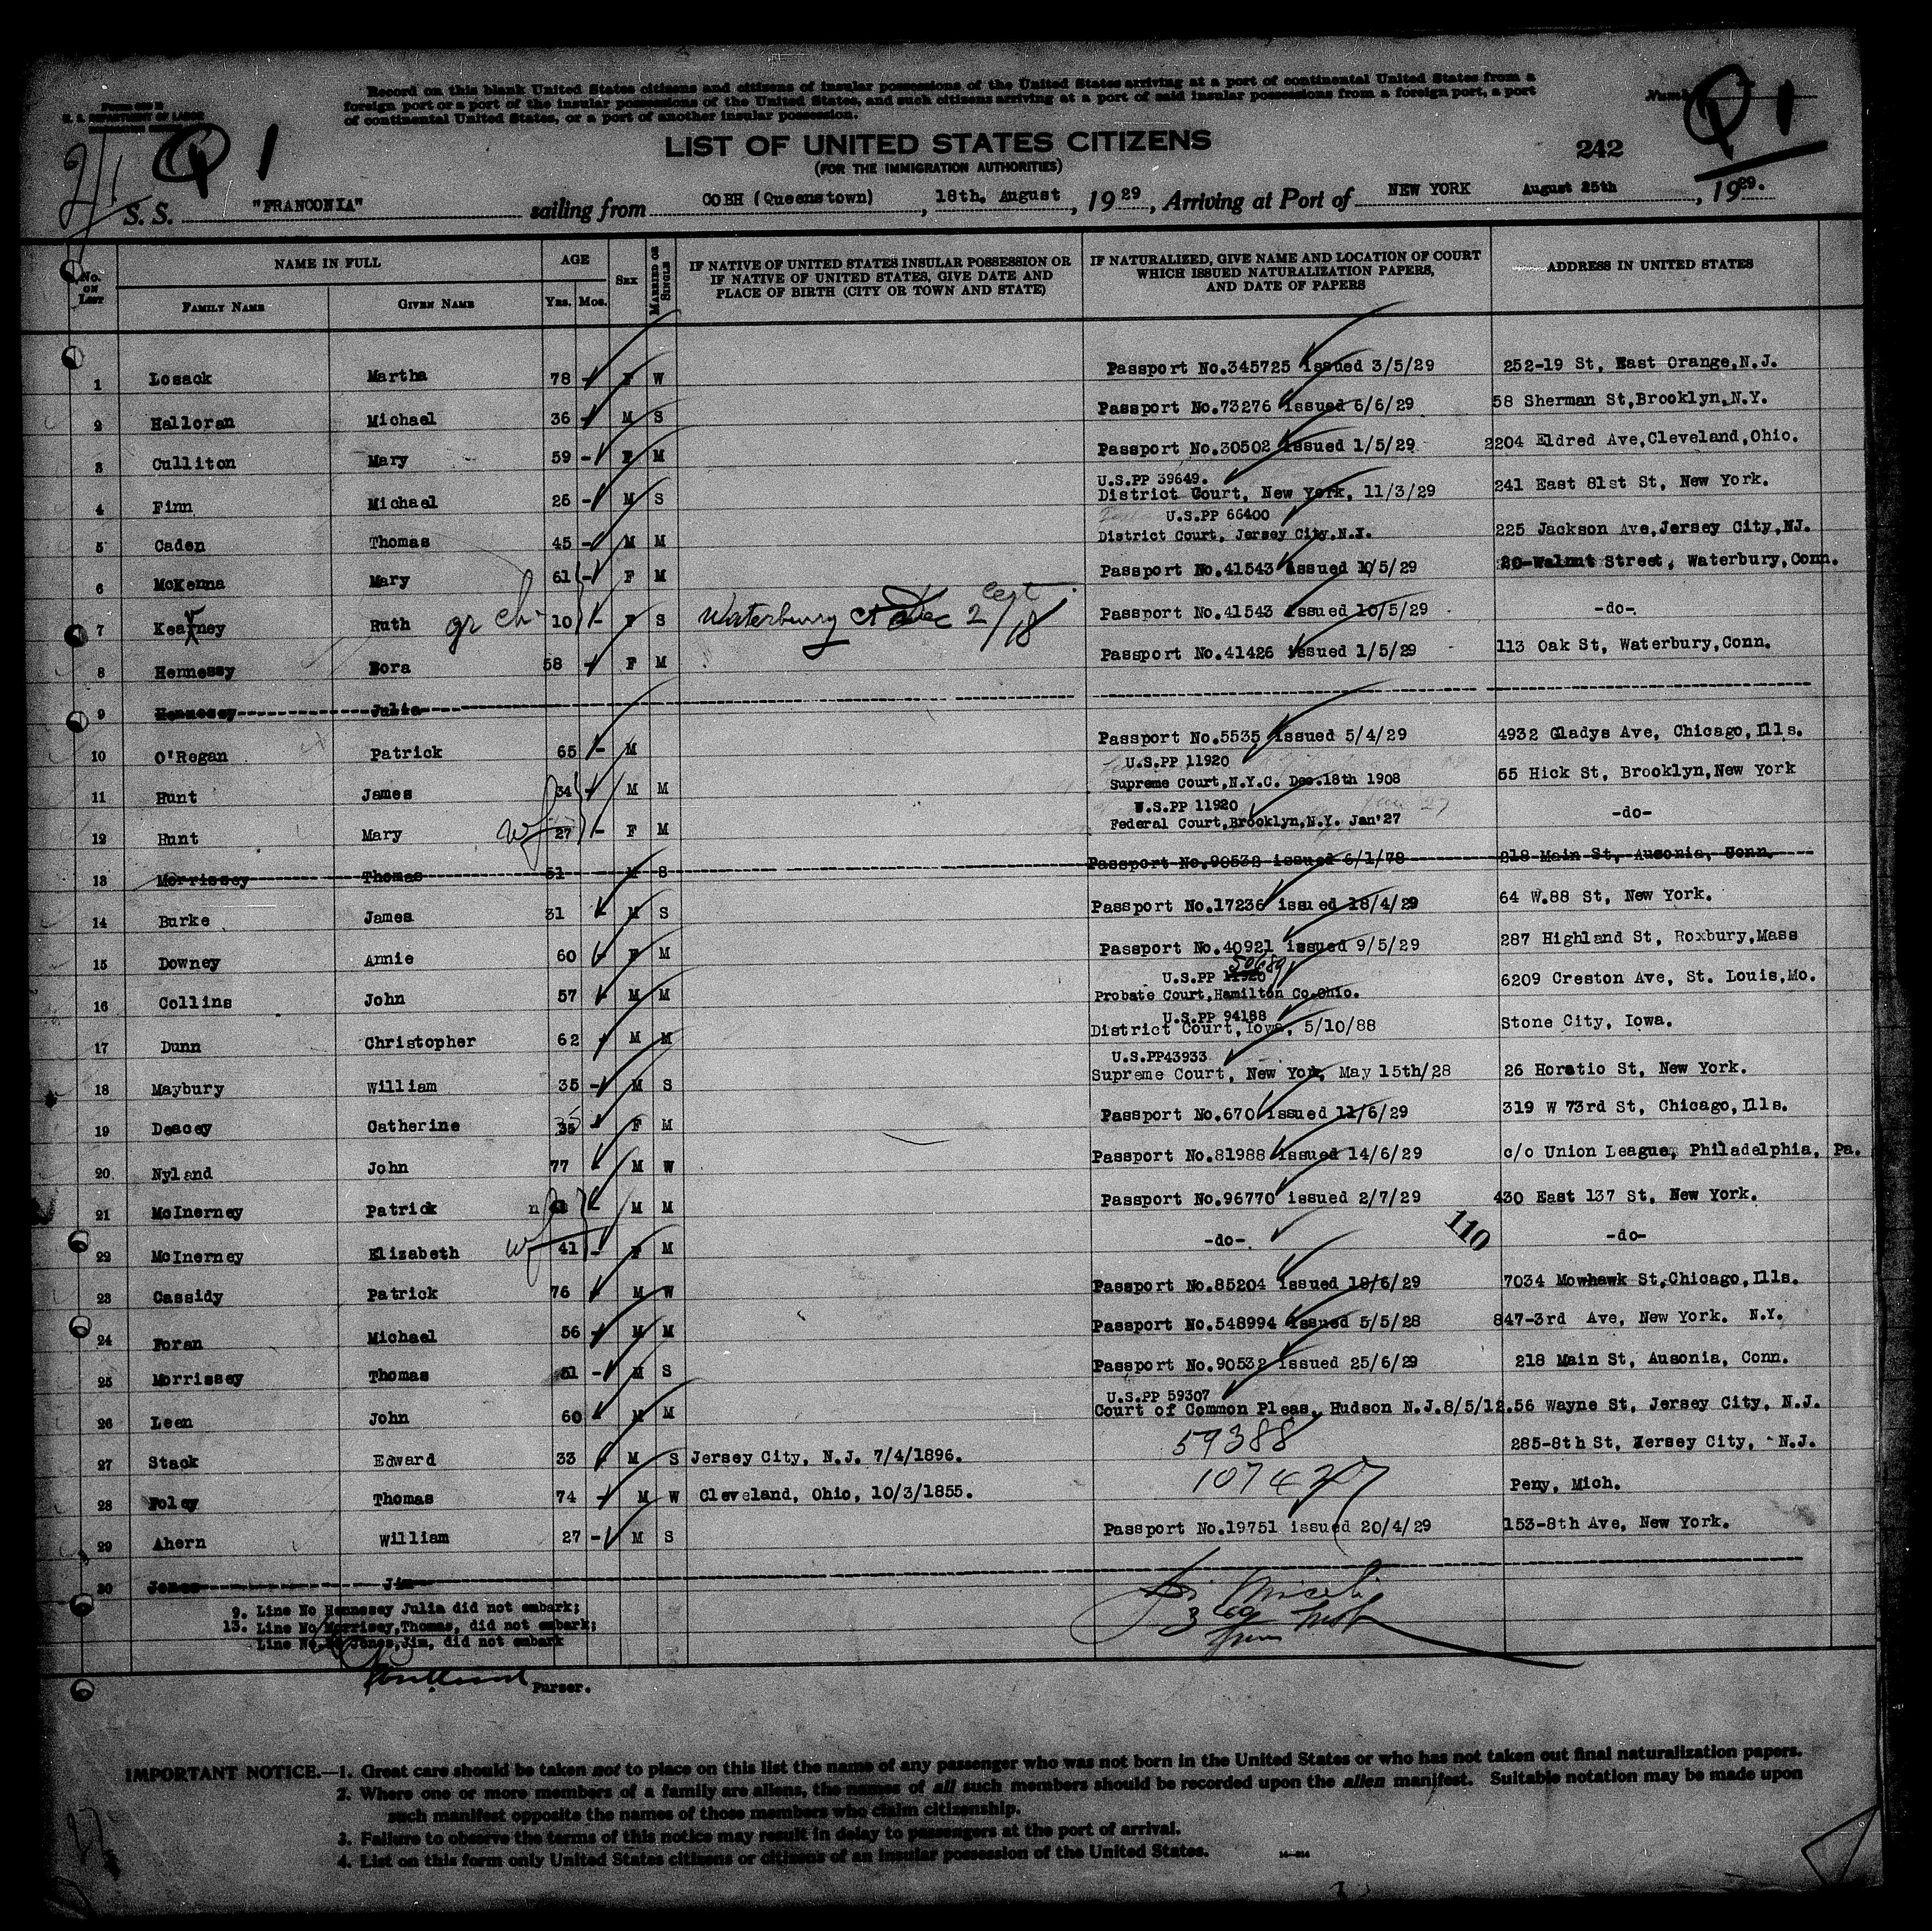 Form 630 B
U. S. DEPARTMENT OF LABOR
Record on this blank United States citizens and citizens of insular possessions of the United States arriving at a port of continental United States from a
foreign port or a port of the insular possessions of the United States, and such citizens arriving at a port of said insular possessions from a foreign port, a port
of continental United States, or a port of another insular possession.
Q 1
Q 1
LIST OF UNITED STATES CITIZENS
242
(FOR THE IMMIGRATION AUTHORITIES)
S. S. "FRANCONIA" sailing from COBH (Queenstown), 18th. August, 1929, Arriving at Port of NEW YORK August 25th, 1929.
No. ON LIST NAME IN FULL FAMILY NAME GIVEN NAME AGE Yrs. Mos. SEX MARRIED OR SINGLE
IF NATIVE OF UNITED STATES INSULAR POSSESSION OR
IF NATIVE OF UNITED STATES, GIVE DATE AND
PLACE OF BIRTH (CITY OR TOWN AND STATE)
IF NATURALIZED, GIVE NAME AND LOCATION OF COURT
WHICH ISSUED NATURALIZATION PAPERS,
AND DATE OF PAPERS
ADDRESS IN UNITED STATES
1 Losack Martha 78 - F W Passport No.345725 issued 3/5/29 252-19 St, East Orange,N.J.
2 Halloran Michael 36 - M S Passport No.73276 issued 6/6/29 58 Sherman St,Brooklyn,N.Y.
3 Culliton Mary 59 - F M Passport No.30502 issued 1/5/29 2204 Eldred Ave,Cleveland,Ohio.
4 Finn Michael 26 - M S U.S.PP 39649. District Court, New York, 11/3/29 241 East 81st St, New York.
5 Caden Thomas 45 - M M U.S.PP 66400 District Court, Jersey City,N.J. 225 Jackson Ave,Jersey City,NJ.
6 McKenna Mary 61 - F M Passport No.41543 issued 10/5/29 20-Walnut Street, Waterbury, Conn.
7 Kearney Ruth gr ch 10 - F S Waterbury Ct Dec 2/18 Cert Passport No.41543 issued 10/5/29 -do-
8 Hennessy Nora 58 - F M Passport No.41426 issued 1/5/29 113 Oak St, Waterbury,Conn.
9 Hennessy Julia
10 O'Regan Patrick 65 - M Passport No.5535 issued 5/4/29 4932 Gladys Ave, Chicago,Ills.
11 Hunt James 34 - M M U.S.PP 11920 Supreme Court,N.Y.C. Dec.18th 1908 55 Hick St, Brooklyn,New York
12 Hunt Mary wf 27 - F M U.S.PP 11920 Federal Court,Brooklyn,N.Y. Jan'27 -do-
13 Morrissey Thomas 51 M S Passport No.90532 issued 6/1/78 218 Main St, Ausonia, Conn.
14 Burke James 31 M S Passport No.17236 issued 18/4/29 64 W.88 St, New York.
15 Downey Annie 60 - F M Passport No.40921 issued 9/5/29 287 Highland St, Roxbury,Mass
16 Collins John 57 - M M U.S.PP 11920 50689 Probate Court,Hamilton Co.Ohio. 6209 Creston Ave, St. Louis,Mo.
17 Dunn Christopher 62 - M M U.S.PP 94188 District Court,Iowa, 5/10/88 Stone City, Iowa.
18 Maybury William 35 - M S U.S.PP43933 Supreme Court, New York, May 15th/28 26 Horatio St, New York.
19 Deacey Catherine 35 - F M Passport No.670 issued 11/6/29 319 W 73rd St, Chicago,Ills.
20 Nyland John 77 M W Passport No.81988 issued 14/6/29 c/o Union League, Philadelphia, Pa.
21 McInerney Patrick M M Passport No.96770 issued 2/7/29 430 East 137 St, New York.
110
22 McInerney Elizabeth wf 41 - F M -do- -do-
23 Cassidy Patrick 76 M W Passport No.85204 issued 18/6/29 7034 Mowhawk St,Chicago,Ills.
24 Foran Michael 56 - M M Passport No.548994 issued 5/5/28 847-3rd Ave, New York. N.Y.
25 Morrissey Thomas 51 - M S Passport No.90532 issued 25/6/29 218 Main St, Ausonia, Conn.
26 Leen John 60 M M U.S.PP 59307 Court of Common Pleas, Hudson N.J.8/5/12. 56 Wayne St, Jersey City, N.J.
27 Stack Edward 33 M S Jersey City, N.J. 7/4/1896. 59388 285-8th St, Jersey City, N.J.
28 Foley Thomas 74 - M W Cleveland, Ohio, 10/3/1855. 107427 Peny, Mich.
29 Ahern William 27 - M S Passport No.19751 issued 20/4/29 153-8th Ave, New York.
30 Jones Jim
9. Line No Hennesey Julia did not embark;
13. Line No Morrisey,Thomas, did not embark;
Line No. Jones,Jim, did not embark
Purser.
IMPORTANT NOTICE.—1. Great care should be taken not to place on this list the name of any passenger who was not born in the United States or who has not taken out final naturalization papers.
2. Where one or more members of a family are aliens, the names of all such members should be recorded upon the alien manifest. Suitable notation may be made upon
such manifest opposite the names of those members who claim citizenship.
3. Failure to observe the terms of this notice may result in delay to passengers at the port of arrival.
4. List on this form only United States citizens or citizens of an insular possession of the United States.